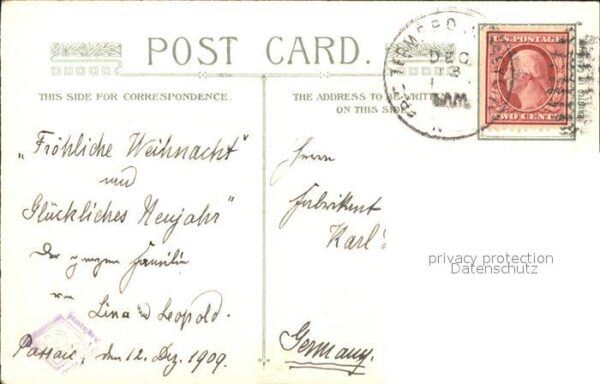 POST CARD.
THIS SIDE FOR CORRESPONDENCE.
THE ADDRESS TO BE WRITTEN
ON THIS SIDE
DEC
13
U.S. POSTAGE
TWO CENTS
„Fröhliche Weihnacht"
und
Glückliches Neujahr"
der ganzen Familie
von Lina u Leopold.
Passaic, den 12. Dez. 1909.
Herrn
Fabrikant
Karl
Germany.
privacy protection
Datenschutz